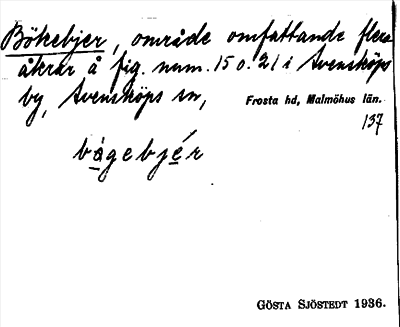 Bökebjer, område omfattande flera
åkrar å fig. num. 15 o. 21 i Svensköps
by, Svensköps sn, Frosta hd, Malmöhus län.
137
bågebjér
GÖSTA SJÖSTEDT 1936.